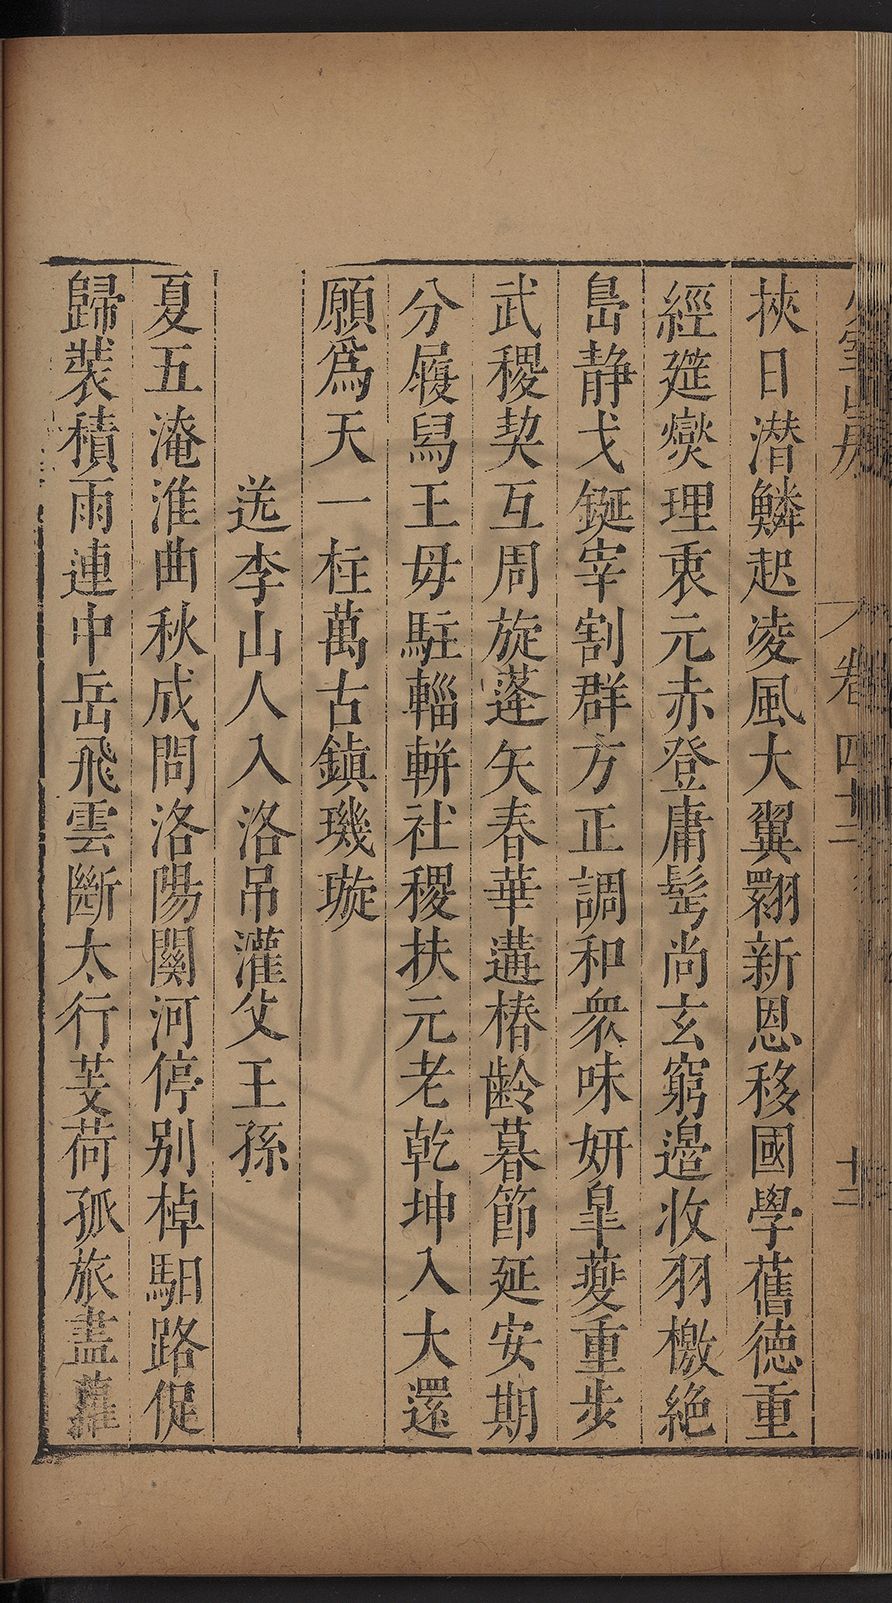 少室山房 卷四十二 十二
挾日潛鱗起凌風大翼翾新恩移國學舊德重
經筵爕理東元赤登庸髩尚玄窮邉收羽檄絶
島静戈鋋宰割群方正調和衆味妍皐夔重步
武稷契互周旋蓬矢春華遘椿齡暮節延安期
分履舄王母駐輜軿社稷扶元老乾坤入大還
願爲天一柱萬古鎮璣璇
送李山人入洛吊灌父王孫
夏五淹淮曲秋成問洛陽關河停别棹馹路促
歸装積雨連中岳飛雲斷太行芰荷孤旅盡蘿